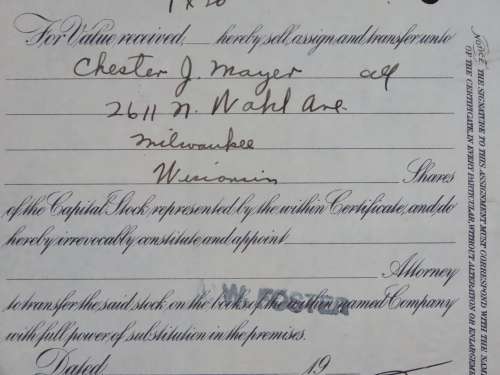 For Value received, hereby sell, assign and transfer unto
Chester J. Mayer all
2611 N. Wahl Ave.
Milwaukee
Wisconsin Shares
of the Capital Stock represented by the within Certificate, and do
hereby irrevocably constitute and appoint
Attorney
to transfer the said stock on the books of the within named Company
W. FOSTER
with full power of substitution in the premises.
Dated 19
NOTICE. THE SIGNATURE TO THIS ASSIGNMENT MUST CORRESPOND WITH THE NAM
OF THE CERTIFICATE, IN EVERY PARTICULAR, WITHOUT ALTERATION OR ENLARGEME